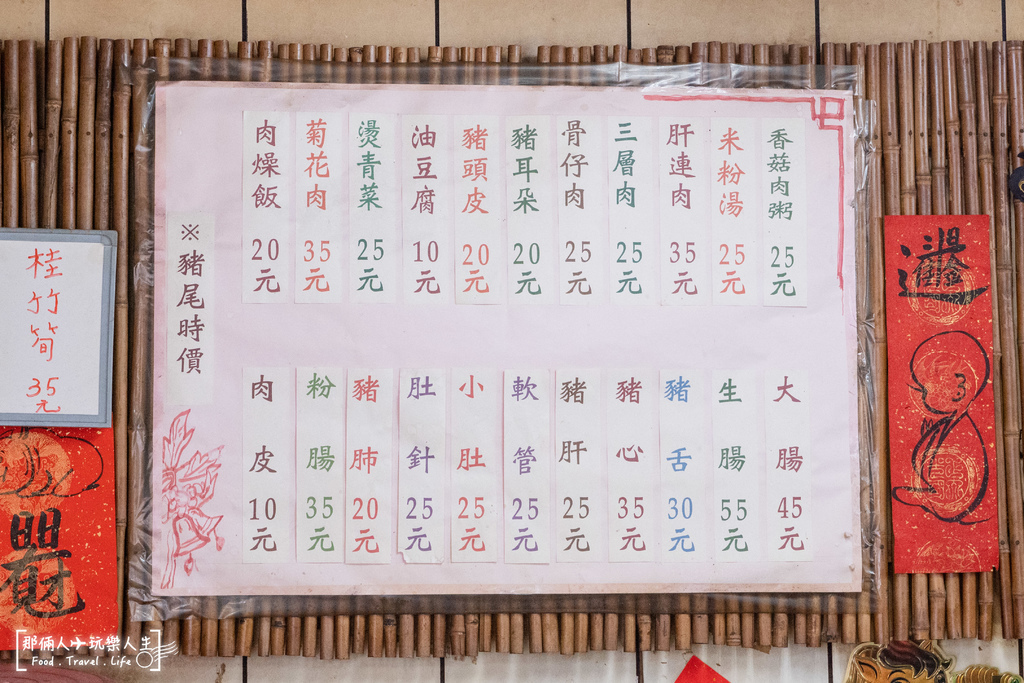 香菇肉粥 25元
米粉湯 25元
肝連肉 35元
三層肉 25元
骨仔肉 25元
豬耳朵 20元
豬頭皮 20元
油豆腐 10元
燙青菜 25元
菊花肉 35元
肉燥飯 20元
大腸 45元
生腸 55元
豬舌 30元
豬心 35元
豬肝 25元
軟管 25元
小肚 25元
肚針 25元
豬肺 20元
粉腸 35元
肉皮 10元
※豬尾時價
桂竹筍 35元
那倆人玩樂人生
Food . Travel . Life